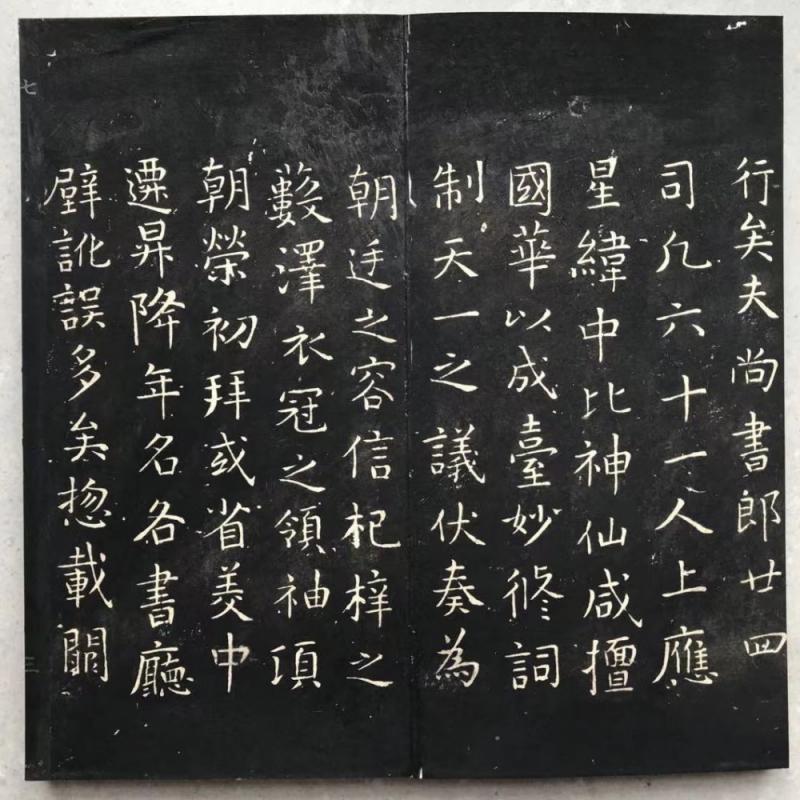 行矣夫尚書郎廿四
司凡六十一人上應
星緯中比神仙咸擅
國華以成臺妙修詞
制天一之議伏奏為
朝廷之容信杞梓之
藪澤衣冠之領袖頃
朝榮初拜或省美中
遷昇降年名各書廳
壁訛誤多矣揔載闕
七
三